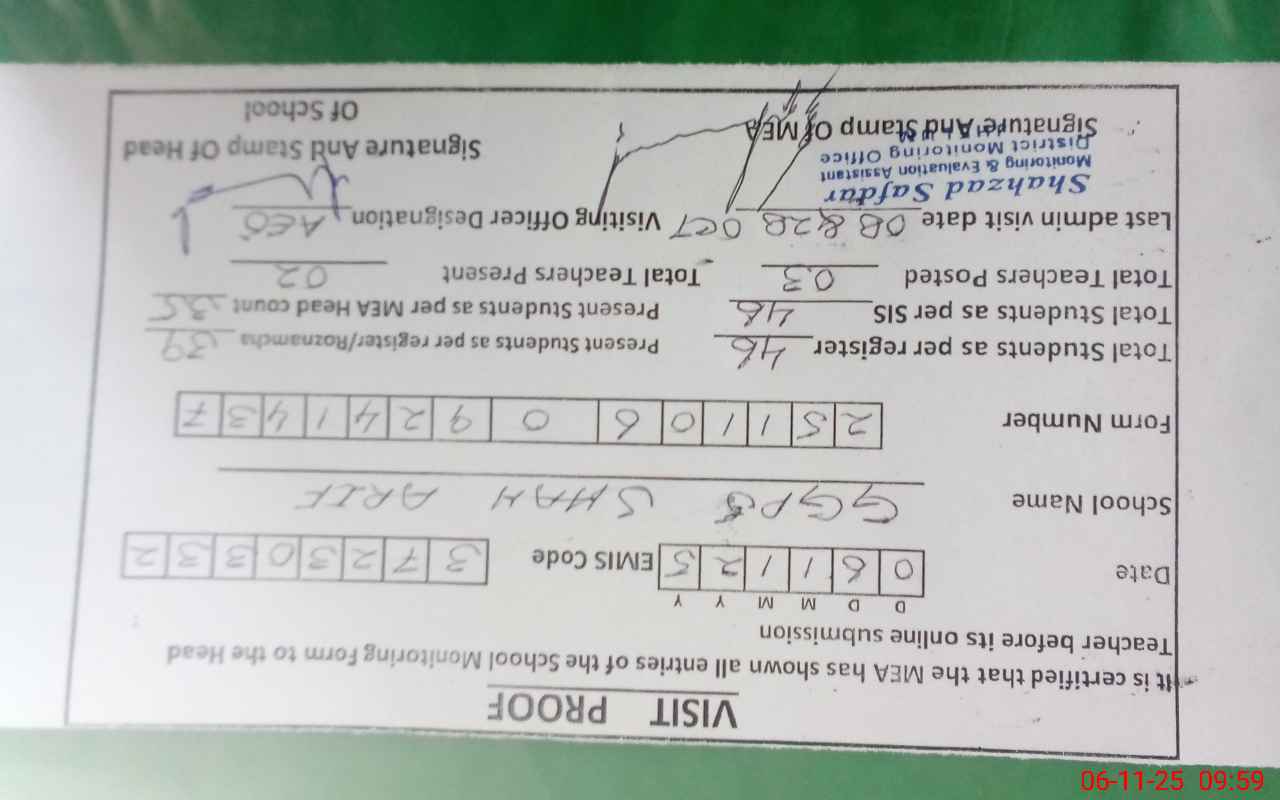 VISIT PROOF
It is certified that the MEA has shown all entries of the School Monitoring Form to the Head
Teacher before its online submission
D D M M Y Y
Date 0 6 1 1 2 5 EMIS Code 3 7 2 3 0 3 3 2
School Name GGPS SHAH ARIF
Form Number 2 5 1 1 0 6 0 9 2 4 1 4 3 7
Total Students as per register 46 Present Students as per register/Roznamcha 39
Total Students as per SIS 46 Present Students as per MEA Head count 35
Total Teachers Posted 03 Total Teachers Present 02
Last admin visit date 08 & 28 OCT Visiting Officer Designation AEO
Shahzad Safdar
Monitoring & Evaluation Assistant
District Monitoring Office
Signature And Stamp Of MEA Signature And Stamp Of Head
Of School
06-11-25 09:59